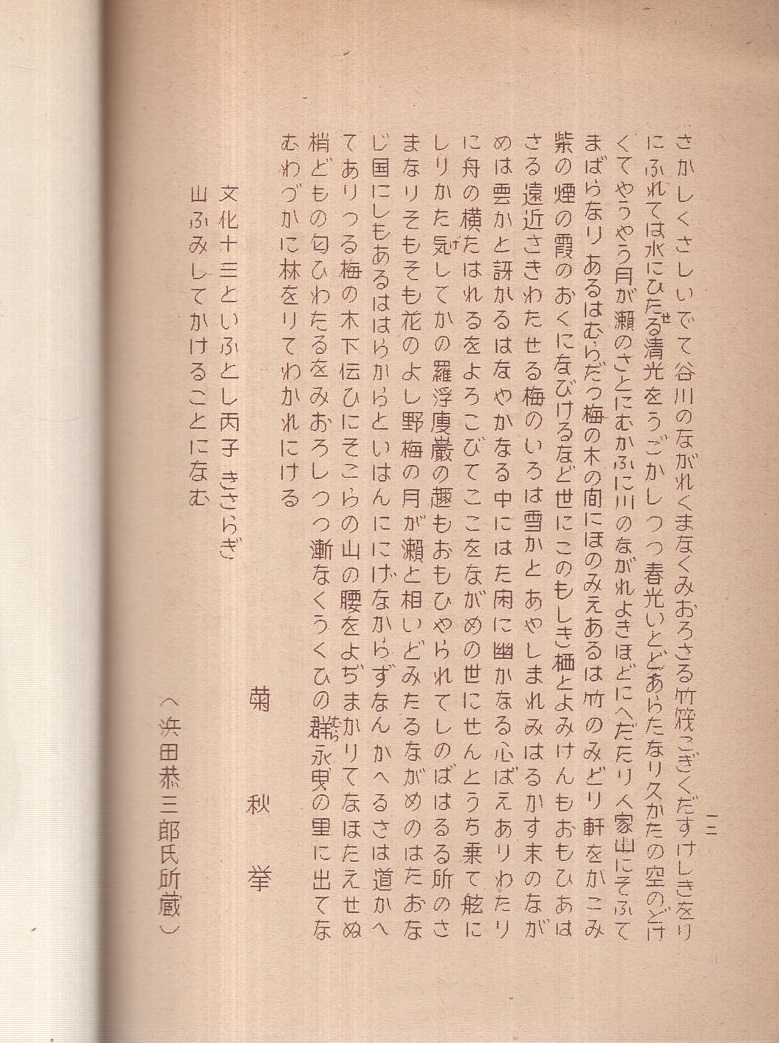 一二
さかしくさしいでて谷川のながれくまなくみおろさる竹筏こぎくだすけしきをり
にふれては水にひたる清光をうごかしつつ春光いとどあらたなり久かたの空のどけ
くてやうやう月が瀬のさとにむかふに川のながれよきほどにへだたり人家山にそふて
まばらなり あるはむらだつ梅の木の間にほのみえあるは竹のみどり軒をかこみ
紫の煙の霞のおくになびけるなど世にこのもしき栖とよみけんもおもひあは
さる遠近さきわたせる梅のいろは雪かとあやしまれみはるかす末のなが
めは雲かと訝かるはなやかなる中にはた閑に幽かなる心ばえありわたり
に舟の横たはれるをよろこびてここをながめの世にせんとうち乗て舷に
しりかた気げしてかの羅浮廋巌の趣もおもひやられてしのばはるる所のさ
まなりそもそも花のよし野梅の月が瀬と相いどみたるながめのはたおな
じ国にしもあるははらからといはんににげなからずなんかへるさは道かへ
てありつる梅の木下伝ひにそこらの山の腰をよぢまかりてなほたえせぬ
梢どもの匂ひわたるをみおろしつつ漸なくうくひの群むら永曳の里に出てな
むわづかに林をりてわかれにける
文化十三といふとし丙子 きさらぎ
山ふみしてかけることになむ
菊 秋 挙
（浜田恭三郎氏所蔵）